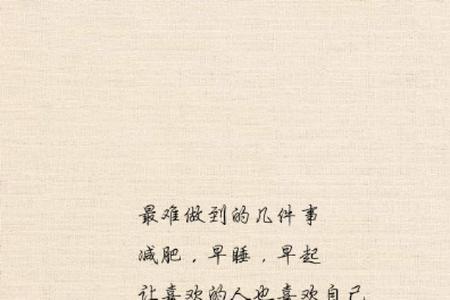 最难做到的几件事
减肥，早睡，早起
让喜欢的人也喜欢自己